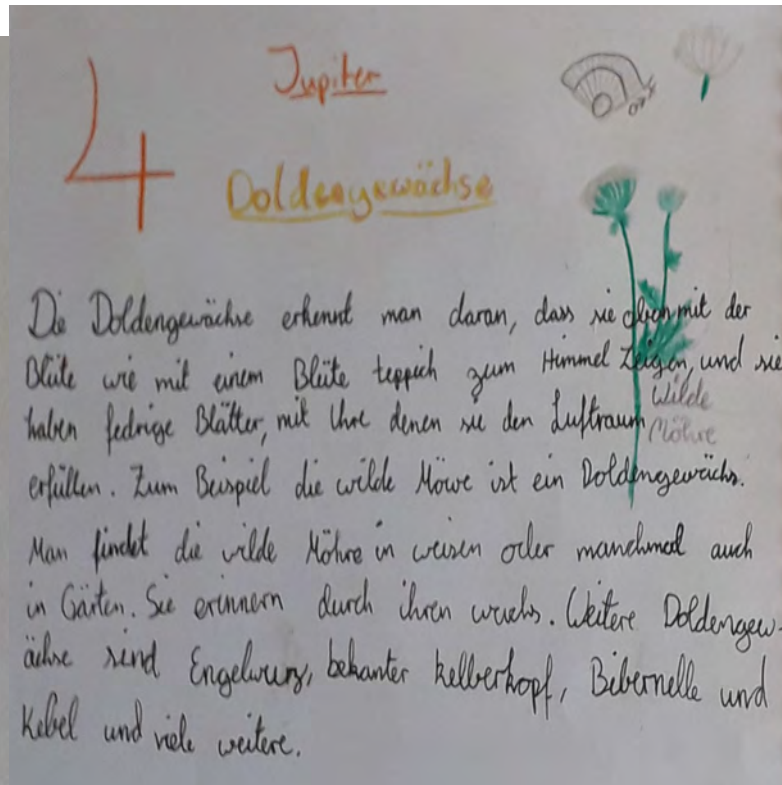 Jupiter
Doldengewächse
Die Doldengewächse erkennt man daran, dass sie oben mit der
Blüte wie mit einem Blüte teppich zum Himmel Zeigen, und sie
haben fedrige Blätter, mit Ihre denen sie den Luftraum
erfüllen. Zum Beispiel die wilde Möwe ist ein Doldengewächs.
Man findet die wilde Möhre in weisen oder manchmal auch
in Gärten. Sie erinnern durch ihren wuchs. Weitere Doldengew-
ächse sind Engelwurz, bekanter kelberkopf, Bibernelle und
Kebel und viele weitere.
Wilde
Möhre